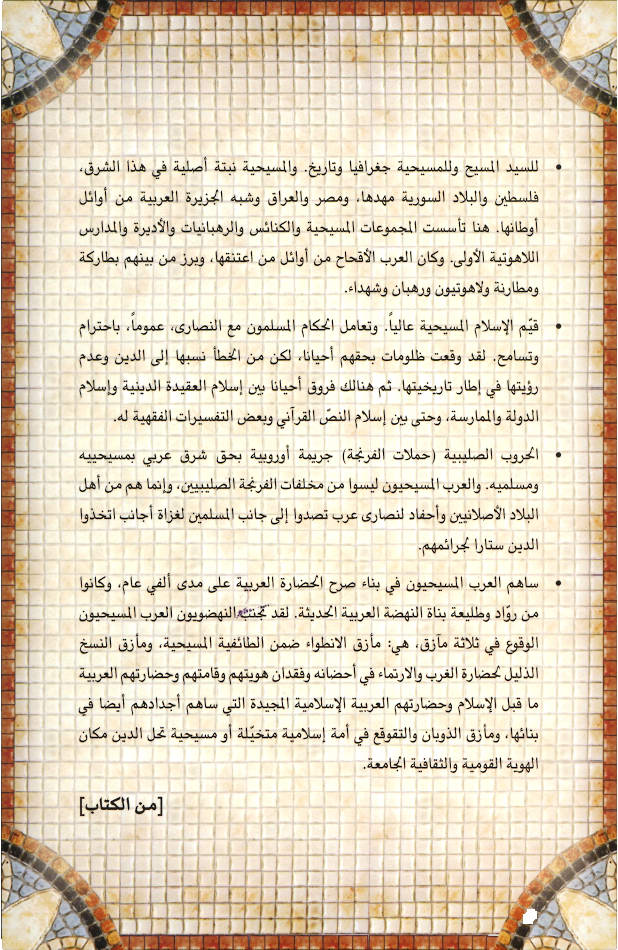 • للسيد المسيح وللمسيحية جغرافيا وتاريخ. والمسيحية نبتة أصلية في هذا الشرق،
فلسطين والبلاد السورية مهدها، ومصر والعراق وشبه الجزيرة العربية من أوائل
أوطانها. هنا تأسست المجموعات المسيحية والكنائس والرهبانيات والأديرة والمدارس
اللاهوتية الأولى. وكان العرب الأقحاح من أوائل من اعتنقها، وبرز من بينهم بطاركة
ومطارنة ولاهوتيون ورهبان وشهداء.
• قيّم الإسلام المسيحية عالياً. وتعامل الحكام المسلمون مع النصارى، عموماً، باحترام
وتسامح. لقد وقعت ظلومات بحقهم أحيانا، لكن من الخطأ نسبها إلى الدين وعدم
رؤيتها في إطار تاريخيتها. ثم هنالك فروق أحيانا بين إسلام العقيدة الدينية وإسلام
الدولة والممارسة، وحتى بين إسلام النصّ القرآني وبعض التفسيرات الفقهية له.
• الحروب الصليبية (حملات الفرنجة) جريمة أوروبية بحق شرق عربي بمسيحييه
ومسلميه. والعرب المسيحيون ليسوا من مخلفات الفرنجة الصليبيين، وإنما هم من أهل
البلاد الأصلانيين وأحفاد لنصارى عرب تصدوا إلى جانب المسلمين لغزاة أجانب اتخذوا
الدين ستارا لجرائمهم.
• ساهم العرب المسيحيون في بناء صرح الحضارة العربية على مدى ألفي عام، وكانوا
من روّاد وطليعة بناة النهضة العربية الحديثة. لقد تجنّب النهضويون العرب المسيحيون
الوقوع في ثلاثة مآزق، هي: مأزق الانطواء ضمن الطائفية المسيحية، ومأزق النسخ
الذليل لحضارة الغرب والارتماء في أحضانه وفقدان هويتهم وقامتهم وحضارتهم العربية
ما قبل الإسلام وحضارتهم العربية الإسلامية المجيدة التي ساهم أجدادهم أيضا في
بنائها، ومأزق الذوبان والتقوقع في أمة إسلامية متخيّلة أو مسيحية تحل الدين مكان
الهوية القومية والثقافية الجامعة.
[من الكتاب]